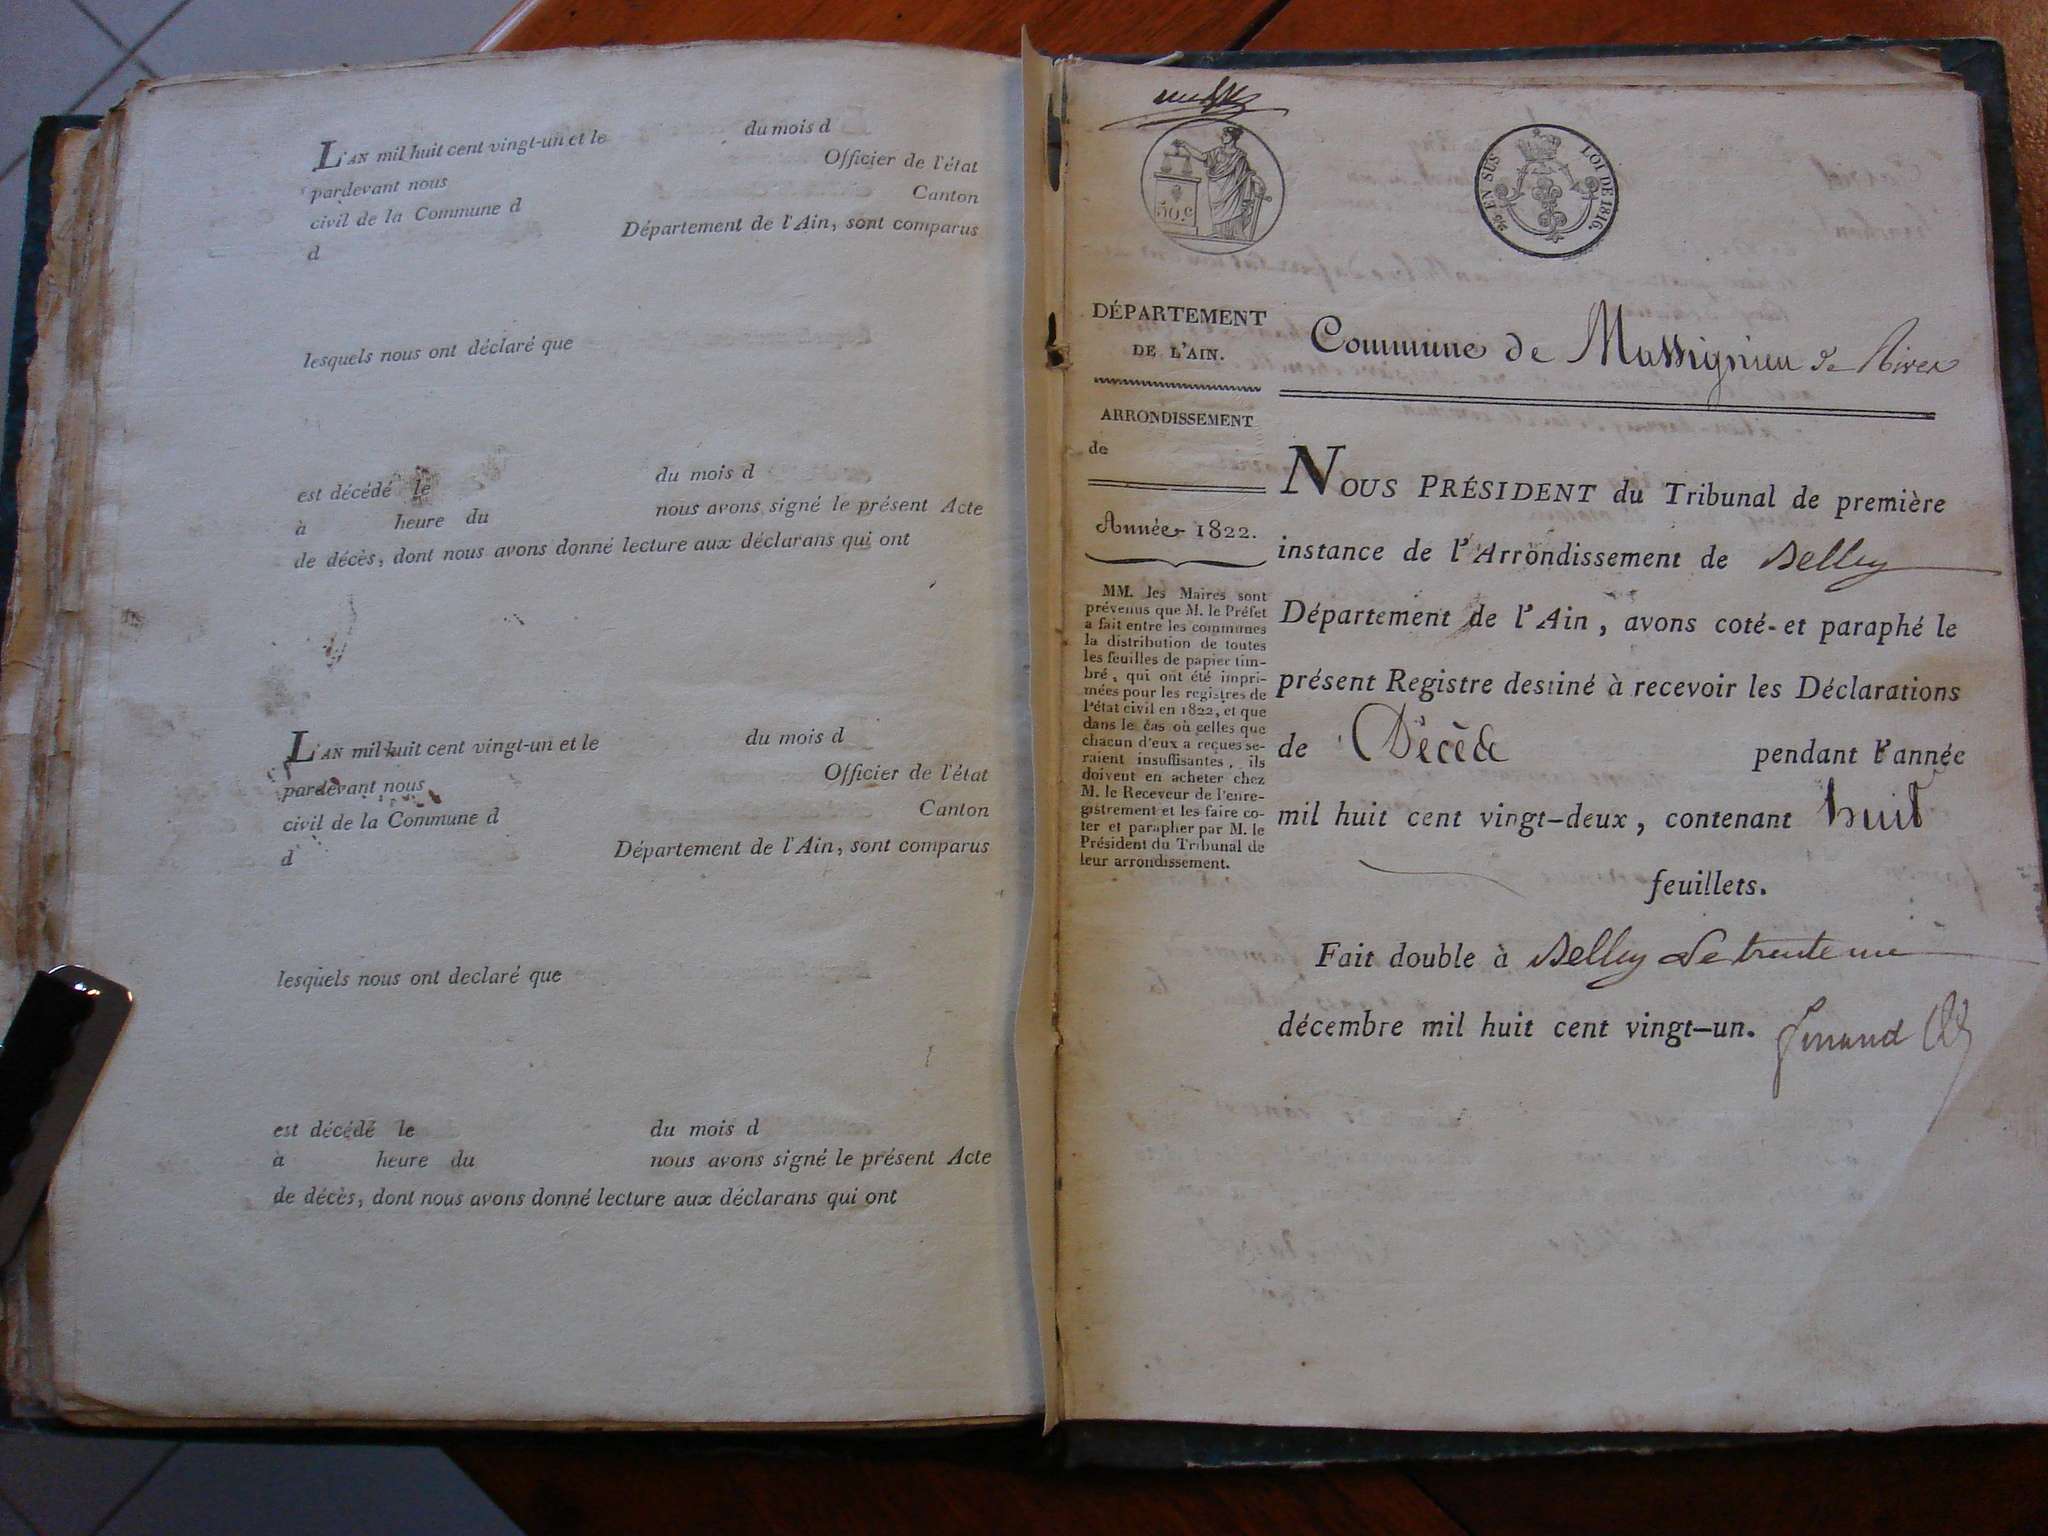 L'AN mil huit cent vingt-un et le du mois d
pardevant nous Officier de l'état
civil de la Commune d Canton
d Département de l'Ain, sont comparus
lesquels nous ont déclaré que
est décédé le du mois d
à heure du nous avons signé le présent Acte
de décès, dont nous avons donné lecture aux déclarans qui ont
L'AN mil huit cent vingt-un et le du mois d
pardevant nous Officier de l'état
civil de la Commune d Canton
d Département de l'Ain, sont comparus
lesquels nous ont declaré que
est décédé le du mois d
à heure du nous avons signé le présent Acte
de décès, dont nous avons donné lecture aux déclarans qui ont
50.c
EN SUS LOI DE 1816.
DÉPARTEMENT
DE L'AIN.
ARRONDISSEMENT
de
Année 1822.
MM. les Maires sont
prévenus que M. le Préfet
a fait entre les communes
la distribution de toutes
les feuilles de papier tim-
bré, qui ont été impri-
mées pour les registres de
l'état civil en 1822, et que
dans le cas où celles que
chacun d'eux a reçues se-
raient insuffisantes, ils
doivent en acheter chez
M. le Receveur de l'enre-
gistrement et les faire co-
ter et parapher par M. le
Président du Tribunal de
leur arrondissement.
Commune de Massignieu de Rives
NOUS PRÉSIDENT du Tribunal de première
instance de l'Arrondissement de Belley
Département de l'Ain, avons coté et paraphé le
présent Registre destiné à recevoir les Déclarations
de Décès pendant l'année
mil huit cent vingt-deux, contenant huit
feuillets.
Fait double à Belley le trente un
décembre mil huit cent vingt-un.